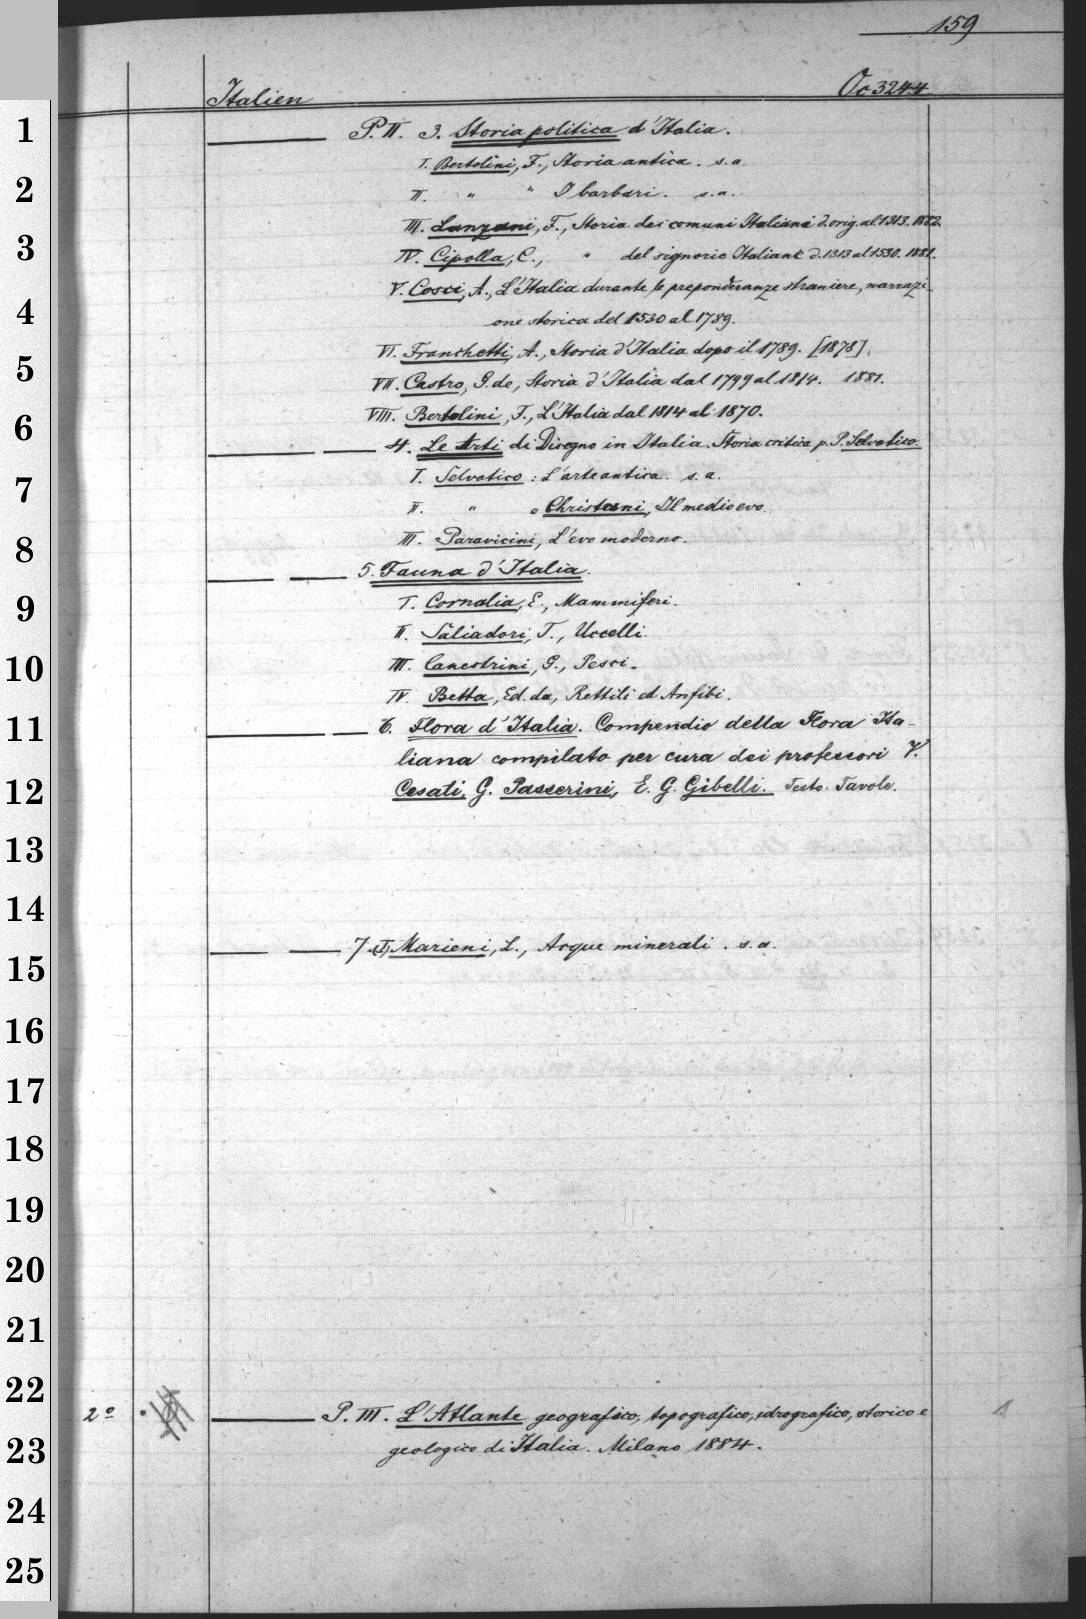 159
Italien Oo 3244
P. II. 3. Storia politica d'Italia.
I. Bertolini, F., Storia antica. s.a.
II. " " I barbari. s.a.
III. Lanzani, F., Storia dei comuni Italiani d. orig. al 1313. 1882.
IV. Cipolla, C., " del signorie Italiane d. 1313 al 1530. 1881.
V. Cosci, A., L'Italia durante le preponderanze straniere, narrazi-
one storica del 1530 al 1789.
VI. Franchetti, A., Storia d'Italia dopo il 1789. [1878].
VII. Castro, G. de, Storia d'Italia dal 1799 al 1814. 1881.
VIII. Bertolini, F., L'Italia dal 1814 al 1870.
4. Le Arti di Disegno in Italia. Storia critica p. P. Selvatico.
I. Selvatico: L'arte antica. s.a.
II. " e Christani, Il medio evo.
III. Paravicini, L'evo moderno.
5. Fauna d'Italia.
I. Cornalia, E., Mammiferi.
II. Saliadori, T., Uccelli.
III. Canestrini, G., Pesci.
IV. Betta, Ed. da, Rettili et Anfibi.
6. Flora d'Italia. Compendio della Flora Ita-
liana compilato per cura dei professori V.
Cesati, G. Passerini, E. G. Gibelli. Testo. Tavole.
7. (I) Marieni, L., Acque minerali. s.a.
2° P. III. L'Atlante geografico, topografico, idrografico, storico e 1
geologico di Italia. Milano 1884.
1
2
3
4
5
6
7
8
9
10
11
12
13
14
15
16
17
18
19
20
21
22
23
24
25